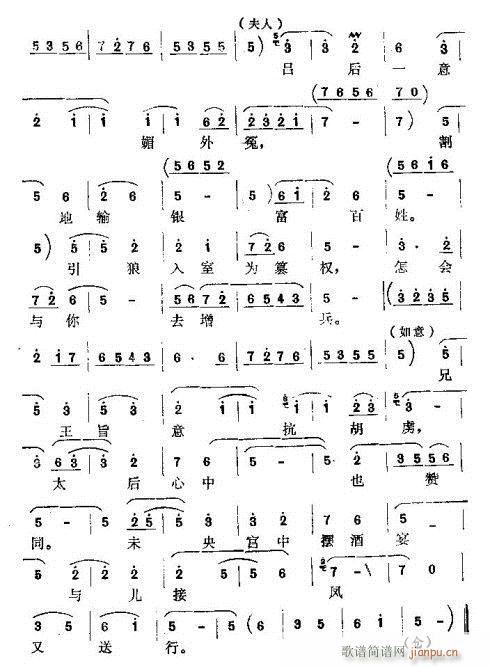 (夫人)
5 3 5 6 | 7 2 7 6 | 5 3 5 5 | 5) 3 | 3 2 | 6 3
吕后一意
(7 6 5 6 | 7 0)
2 1 | 1 1 | 1 6 2 | 2 3 2 1 | 7 - | 7) 5
媚外冤,割
(5 6 5 2 (5 6 1 6
5 6 | 2 6 | 5 - | 5 6 1 | 2 - | 5 -
地输银富百姓。
5) 5 | 5 2 | 2 1 | 7 2 6 | 5 - | 3 · 2
引狼入室为篡权,怎会
7 2 6 | 5 - | 5 6 7 2 | 6 5 4 3 | 5 - | (3 2 3 5
与你去增兵。
(如意)
2 1 7 | 6 5 4 3 | 6 · 6 | 7 2 7 6 | 5 3 5 5 | 5) 5
兄
3 5 | 3 5 | 2 1 | 1 1 | 2 2 3 | 3
王旨意抗胡虏,
3 6 3 | 3 - | 2 7 6 | 5 - | 5 2 | 3 5 5 6
太后心中也赞
5 - | 5 - | 2 5 5 | 3 3 2 | 7 6 | 5 5
同。未央宫中摆酒宴
5 2 | 2 1 2 | 2 5 | 5 | 7 - | 7 0
与儿接风
3 5 | 5 6 | 5 - | 5 - | (6 3 5 | 6 3 5
又送行。
(仓)
歌谱简谱网
jianpu.cn